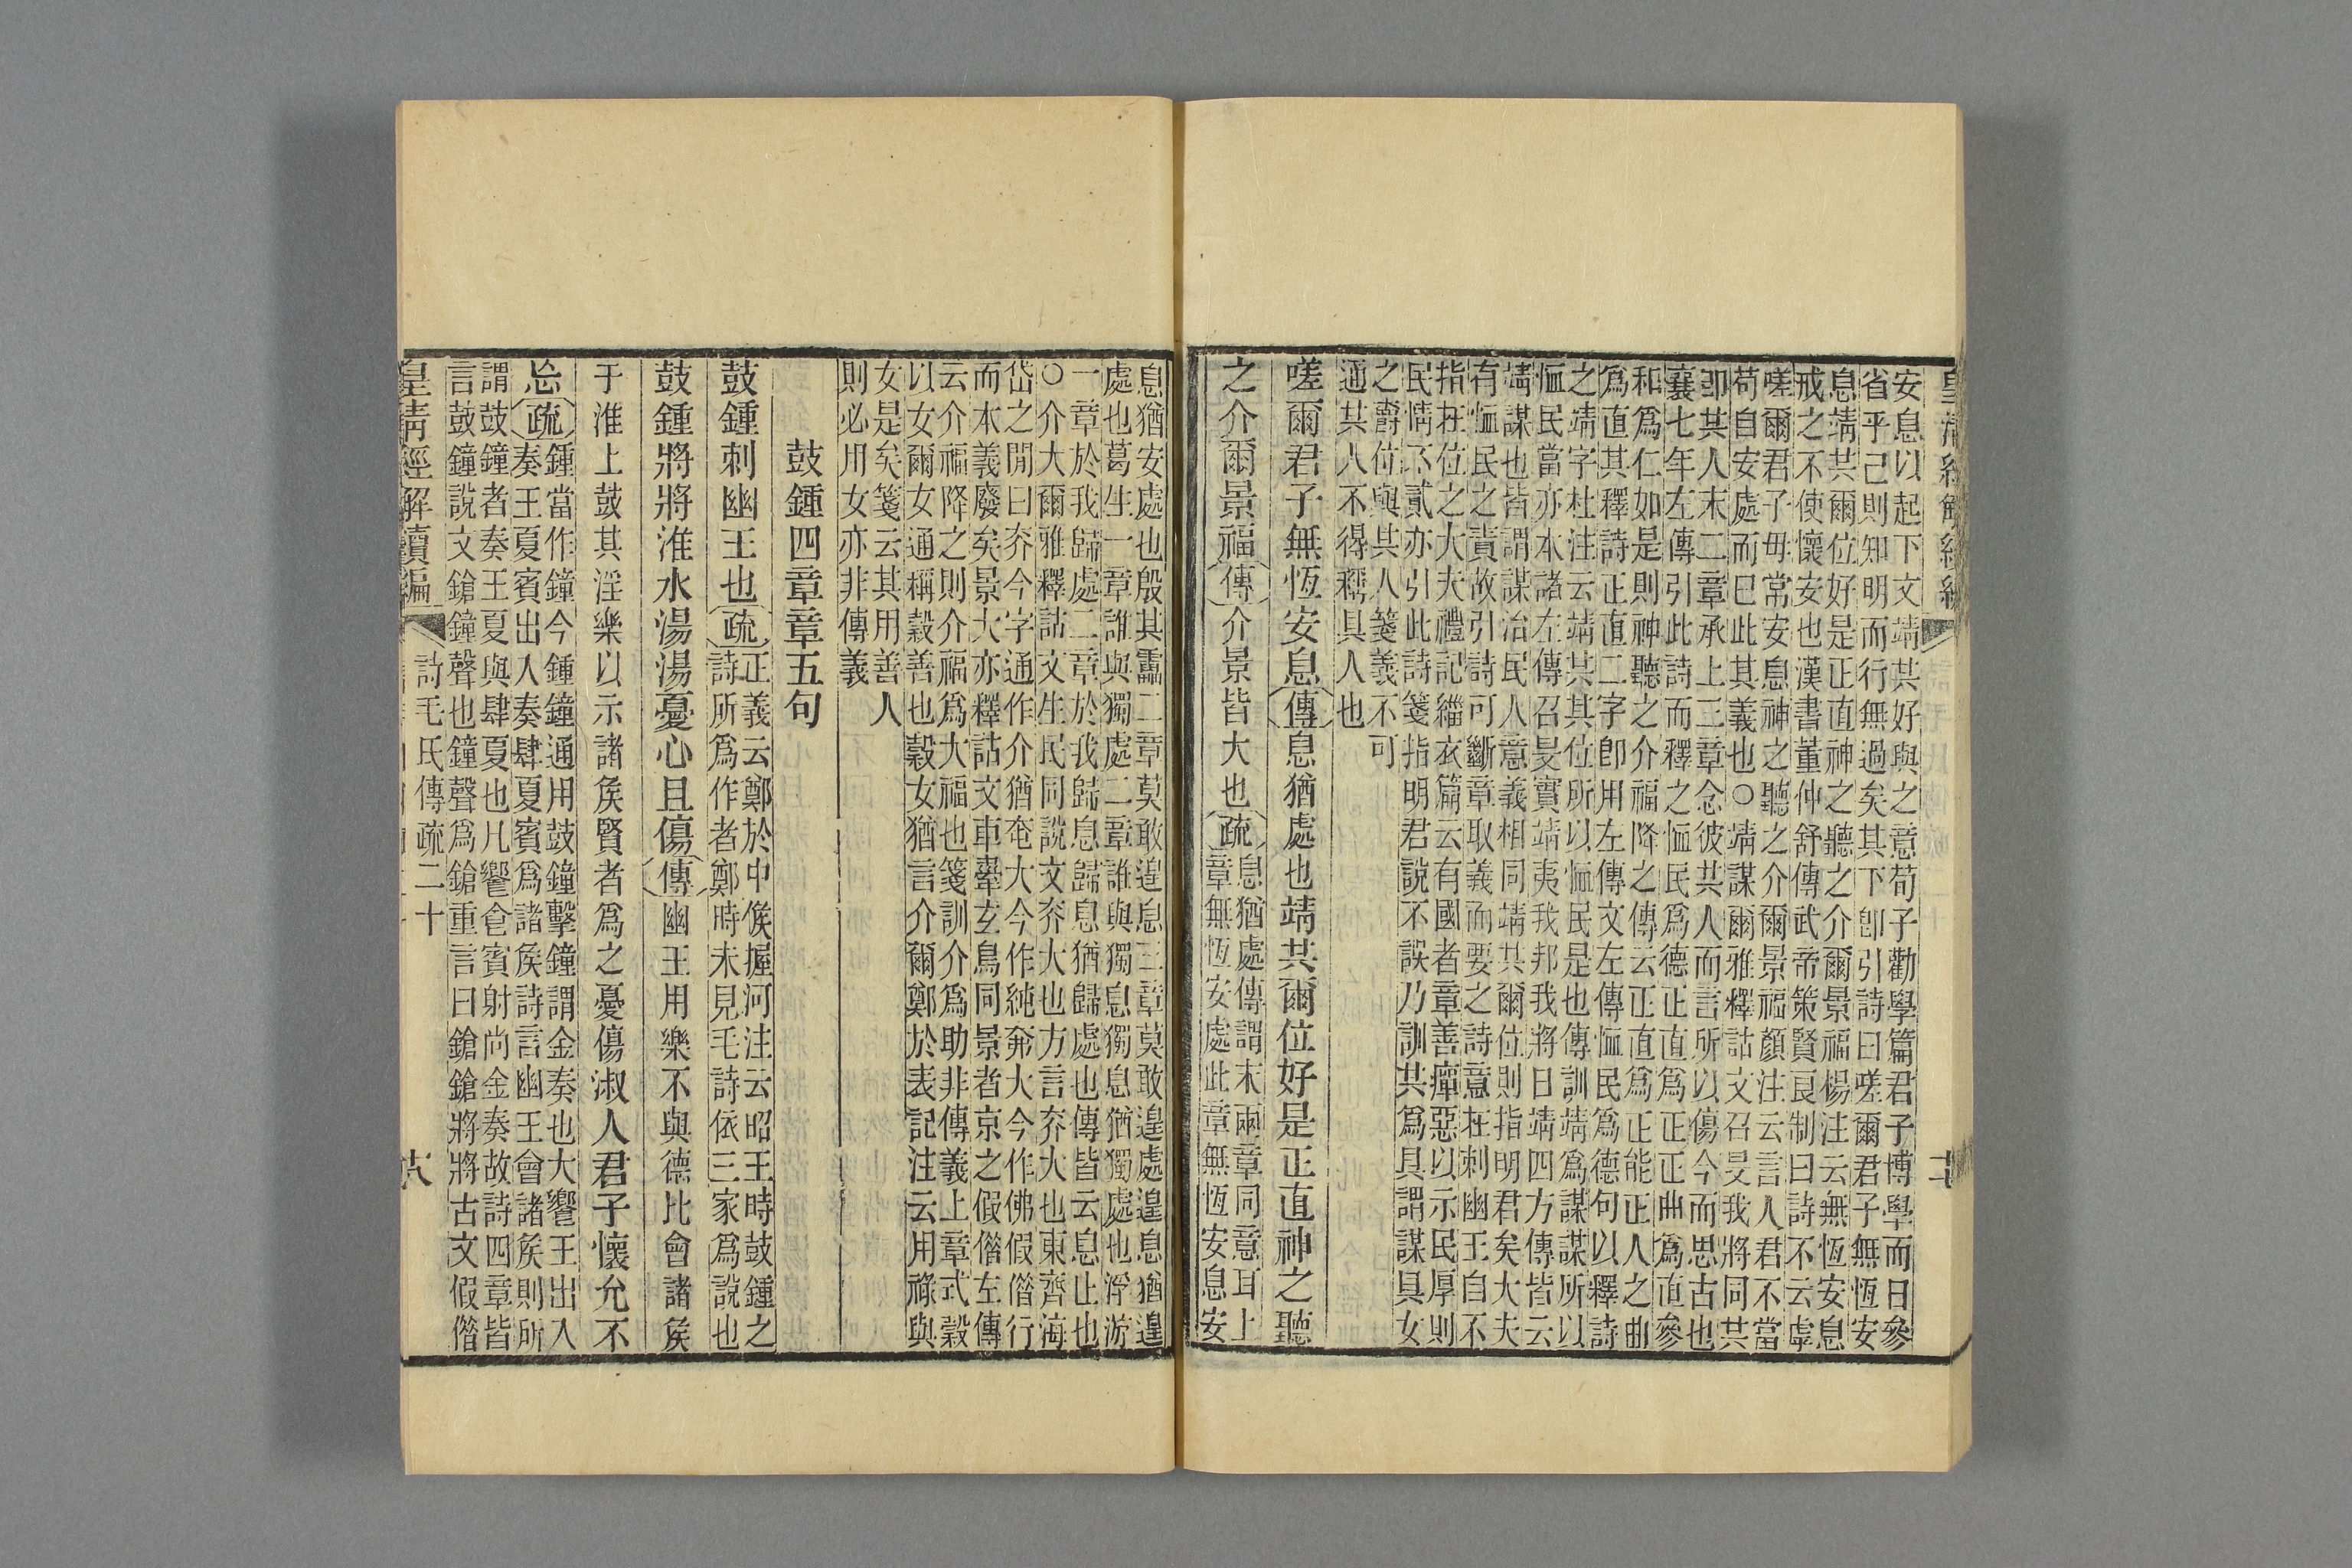 安息以起下文靖其好與之意荀子勸學篇君子博學而日參
省乎己則知明而行無過矣其下卽引詩曰嗟爾君子無恆安
息靖共爾位好是正直神之聽之介爾景福楊注云無恆安息
戒之不使懷安也漢書董仲舒傳武帝策賢良制曰詩不云虖
嗟爾君子毋常安息神之聽之介爾景福顏注云言人君不當
苟自安處而已此其義也○靖謀爾雅釋詁文召旻我將同其
卽其人末二章承上三章念彼共人而言所以傷今而思古也
襄七年左傳引此詩而釋之恤民爲德正直爲正正曲爲直參
和爲仁如是則神聽之介福降之傳云正直爲正能正人之曲
爲直其釋詩正直二字卽用左傳文左傳恤民爲德句以釋詩
之靖字杜注云靖共其位所以恤民是也傳訓靖爲謀謀所以
恤民當亦本諸左傳召旻實靖夷我邦我將日靖四方傳皆云
靖謀也皆謂謀治民人意義相同靖共爾位則指明君矣大夫
有恤民之責故引詩可斷章取義而要之詩意在刺幽王自不
指在位之大夫禮記緇衣篇云有國者章善癉惡以示民厚則
民情不貳亦引此詩箋指明君說不誤乃訓共爲具謂謀具女
之爵位與其人箋義不可
通共人不得稱具人也
嗟爾君子無恆安息傳息猶處也靖共爾位好是正直神之聽
之介爾景福傳介景皆大也疏息猶處傳謂末兩章同意耳上
章無恆安處此章無恆安息安
息猶安處也殷其靁二章莫敢遑息三章莫敢遑處遑息猶遑
處也葛生一章誰與獨處二章誰與獨息獨息猶獨處也浮游
一章於我歸處二章於我歸息歸息猶歸處也傳皆云息止也
○介大爾雅釋詁文生民同說文夰大也方言夰大也東齊海
岱之閒曰夰今字通作介猶奄大今作純奔大今作佛假僭行
而本義廢矣景大亦釋詁文車舝玄鳥同景者京之假僭左傳
云介福降之則介福爲大福也箋訓介爲助非傳義上章式穀
以女爾女通稱穀善也穀女猶言介爾鄭於表記注云用祿與
女是矣箋云其用善人
則必用女亦非傳義
鼓鍾四章章五句
鼓鍾刺幽王也疏正義云鄭於中候握河注云昭王時鼓鍾之
詩所爲作者鄭時未見毛詩依三家爲說也
鼓鍾將將淮水湯湯憂心且傷傳幽王用樂不與德比會諸矦
于淮上鼓其淫樂以示諸矦賢者爲之憂傷淑人君子懷允不
忘疏鍾當作鐘今鍾鐘通用鼓鐘擊鐘謂金奏也大饗王出入
奏王夏賓出入奏肆夏賓爲諸矦詩言幽王會諸矦則所
謂鼓鐘者奏王夏與肆夏也凡饗食賓射尚金奏故詩四章皆
言鼓鐘說文鎗鐘聲也鐘聲爲鎗重言曰鎗鎗將將古文假僭
皇清經解續編 詩毛氏傳疏二十 六